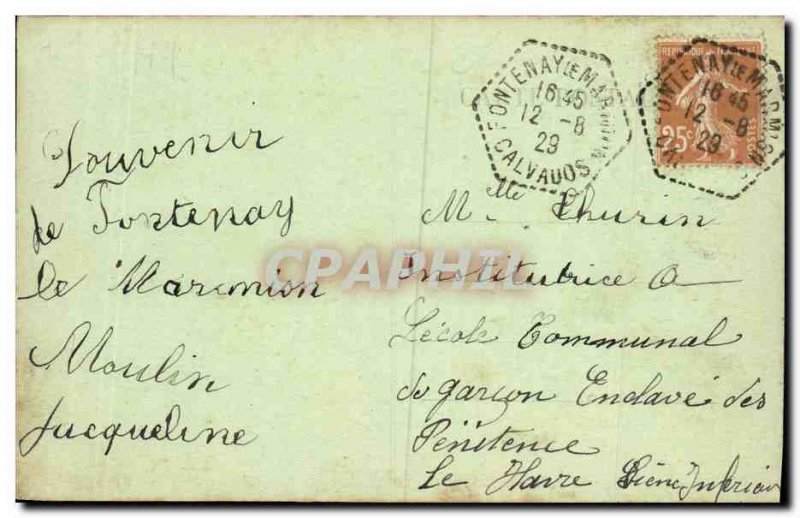 Souvenir
de Fontenay
le Marmion
Moulin
Jacqueline
FONTENAY LE MARMION
16 45
12 - 8
29
CALVADOS
REPUBLIQUE FRANCAISE
25c
POSTES
FONTENAY LE MARMION
16 45
12 - 8
29
CPARAMA
CPAPHIL
Mlle Thurin
Institutrice a
L'école Communal
de garçon Enclavé des
Pénitence
Le Havre Seine Inferieur